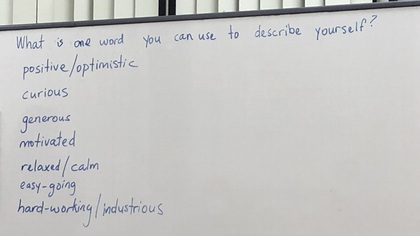 What is one word you can use to describe yourself?
positive/optimistic
curious
generous
motivated
relaxed/calm
easy-going
hard-working/industrious